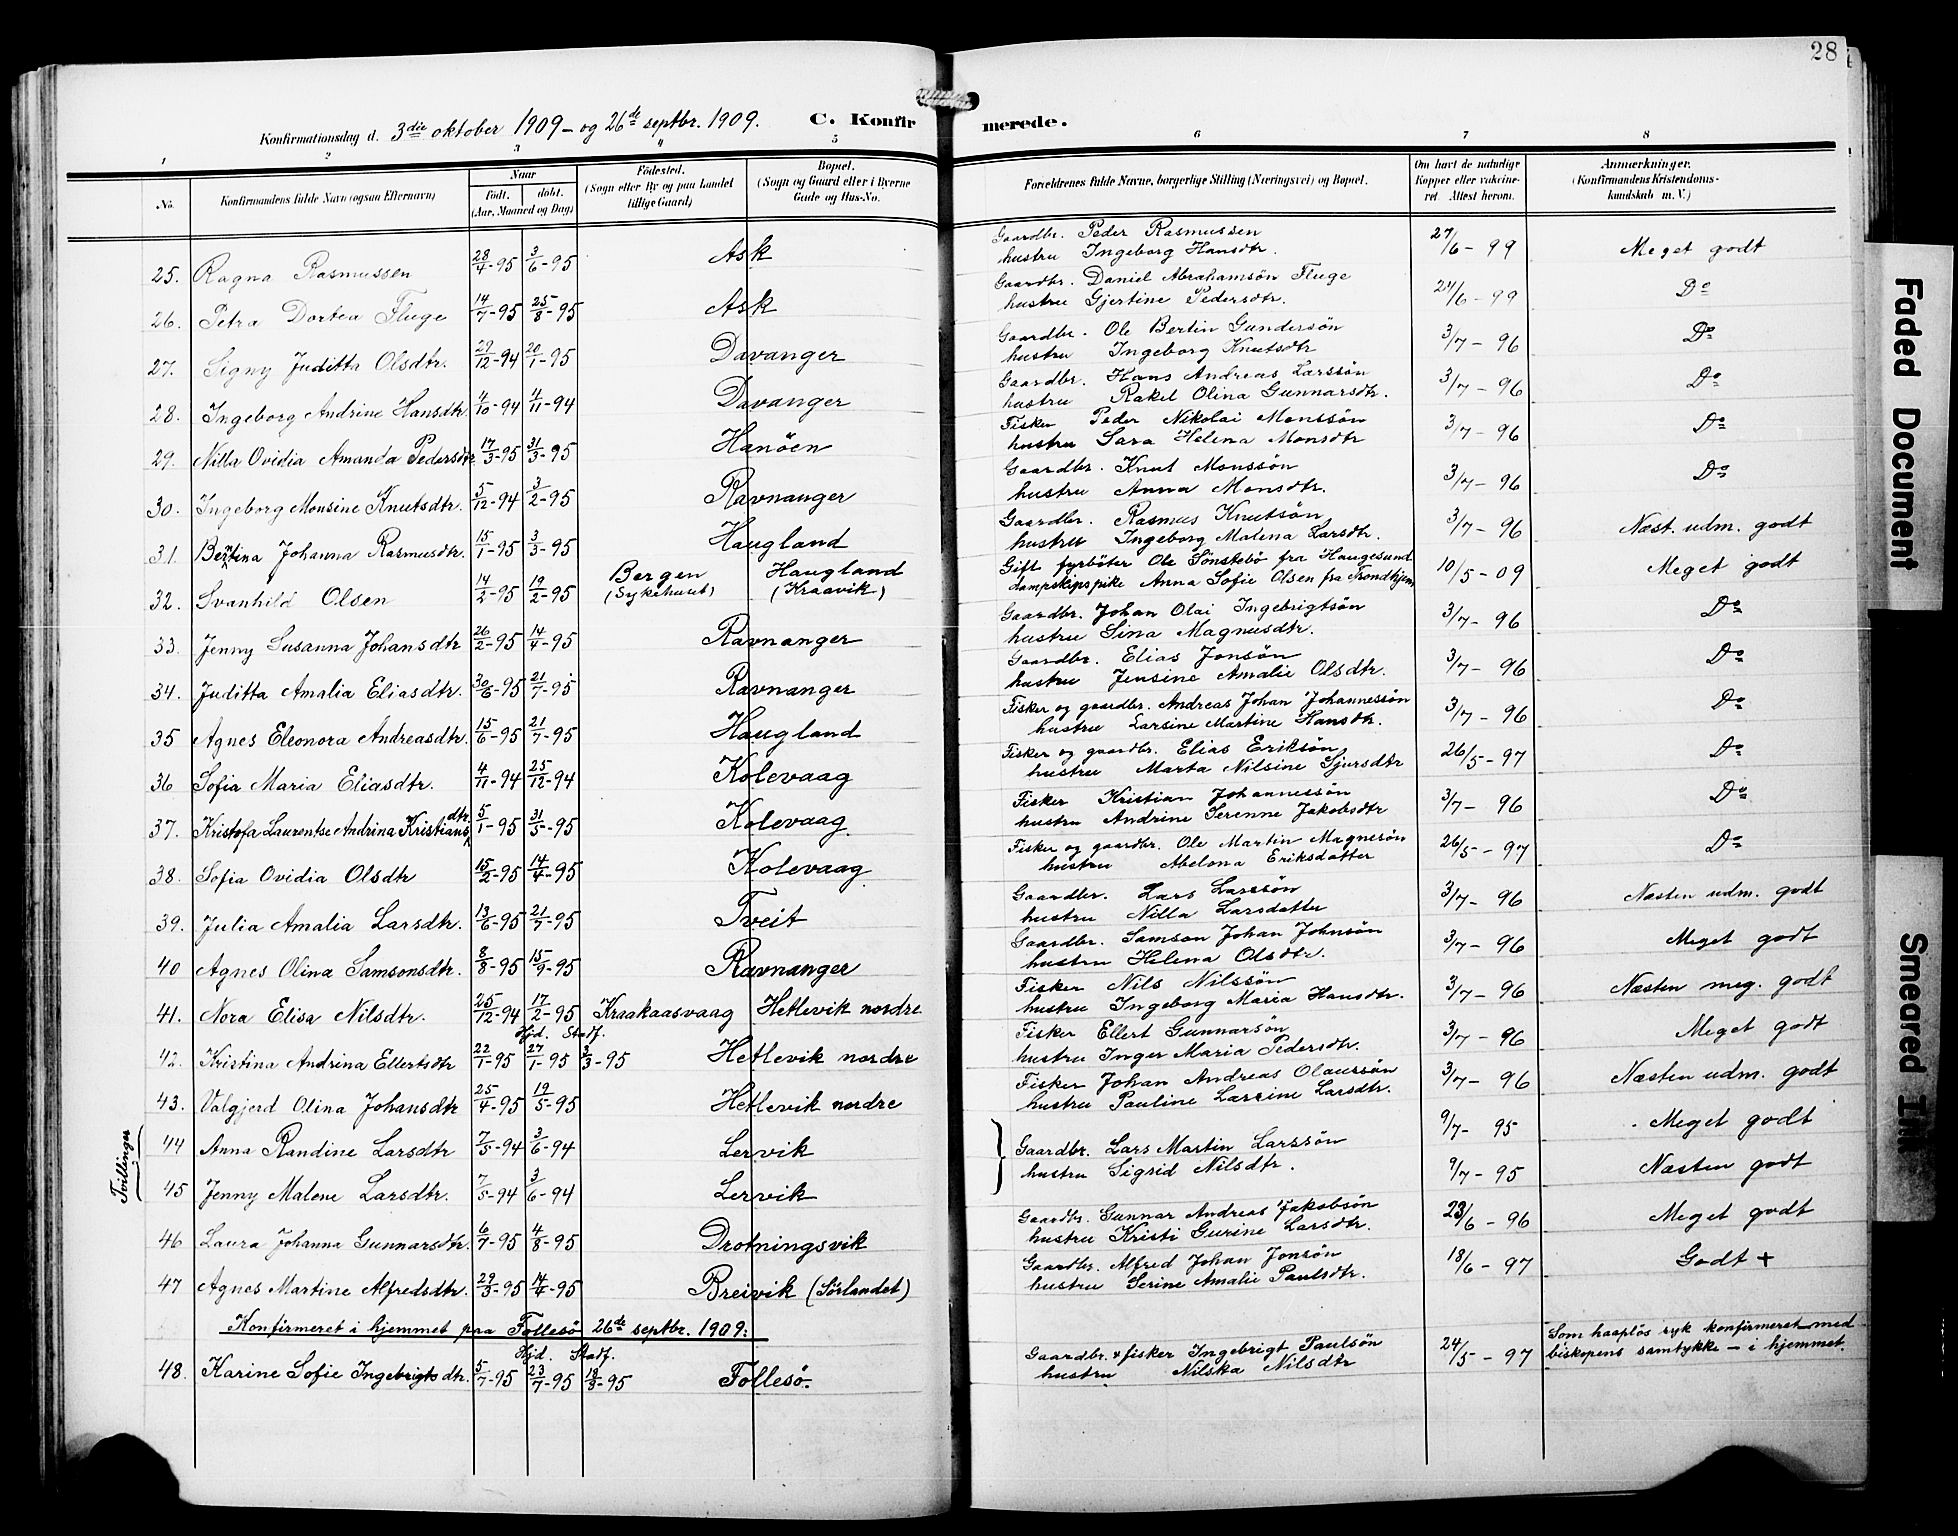 28
Konfirmationsdag d. 3die oktober 1909 – og 26de septbr. 1909. C. Konfirmerede.
1 2 3 4 5 6 7 8
No. Konfirmandens fulde Navn (ogsaa Efternavn) Naar Født. døbt. (Aar, Maaned og Dag) Fødested. (Sogn eller By og paa Landet tillige Gaard) Bopæl. (Sogn og Gaard eller i Byerne Gade og Hus-No. Forældrenes fulde Navne, borgerlige Stilling (Næringsvei) og Bopæl. Om havt de naturlige Kopper eller vaccineret. Attest herom. Anmærkninger. (Konfirmandens Kristendomskundskab m. V.)
25. Ragna Rasmussen 28/4-95 3/6-95 Ask Gaardbr. Peder Rasmussen 27/6-99 Meget godt
hustru Ingeborg Hansdtr.
26. Petra Dortea Fluge 14/7-95 25/8-95 Ask Gaardbr. Daniel Abrahamsön Fluge 27/6-99 Do
hustru Gjertine Pedersdtr.
27. Signy Juditta Olsdtr. 29/12-94 20/1-95 Davanger Gaardbr. Ole Bertin Gundersön 3/7-96 Do
hustru Ingeborg Knutsdtr
28. Ingeborg Andrine Hansdtr. 4/10-94 4/11-94 Davanger Gaardbr. Hans Andreas Larssön 3/7-96 Do
hustru Rakel Olina Gunnarsdtr.
29. Nilla Ovidia Amanda Pedersdtr 17/3-95 31/3-95 Hanöen Fisker Peder Nikolai Monssön 3/7-96 Do
hustru Sara Helena Monsdtr
30. Ingeborg Monsine Knutsdtr. 5/12-94 3/2-95 Ravnanger Gaardbr. Knut Monssön 3/7-96 Do
hustru Anna Monsdtr.
31. Bertina Johanna Rasmusdtr. 15/1-95 3/3-95 Haugland Gaardbr. Rasmus Knutsön 3/7-96 Næst. udm. godt
hustru Ingeborg Malena Larsdtr.
32. Svanhild Olsen 14/2-95 19/2-95 Bergen (Sykehuset) Haugland (Kraavik) Gift fyrböter Ole Sönstebö fra Haugesund 10/5-09 Meget godt
dampskipspike Anna Sofie Olsen fra Trondhjem
33. Jenny Susanna Johansdtr 26/2-95 14/4-95 Ravnanger Gaardbr. Johan Olai Ingebrigtsön 3/7-96 Do
hustru Sina Magnusdtr.
34. Juditta Amalia Eliasdtr. 30/6-95 21/7-95 Ravnanger Gaardbr. Elias Jonsön 3/7-96 Do
hustru Jensine Amalie Olsdtr.
35 Agnes Eleonora Andreasdtr. 15/6-95 21/7-95 Haugland Fisker og gaardbr. Andreas Johan Johannessön 3/7-96 Do
hustru Larsine Martine Hansdtr.
36 Sofia Maria Eliasdtr. 4/11-94 25/12-94 Kolevaag Fisker og gaardbr. Elias Eriksön 26/5-97 Do
hustru Marta Nilsine Sjursdtr
37. Kristofa Laurentse Andrina Kristiansdtr. 5/1-95 31/3-95 Kolevaag Fisker Kristian Johannessön 3/7-96 Do
hustru Andrine Serenne Jakobsdtr
38. Sofia Ovidia Olsdtr 15/2-95 14/4-95 Kolevaag Fisker og gaardbr. Ole Martin Magnesön 26/5-97 Do
hustru Abelona Eriksdatter
39. Julia Amalia Larsdtr. 13/6-95 21/7-95 Tveit Gaardbr. Lars Larssön 3/7-96 Næsten udm. godt
hustru Nilla Larsdatter
40 Agnes Olina Samsonsdtr. 8/8-95 15/9-95 Ravnanger Gaardbr. Samson Johan Johnsön 3/7-96 Meget godt
hustru Helena Olsdtr.
41. Nora Elisa Nilsdtr. 25/12-94 17/2-95 Kraakaasvaag Hetlevik nordre Fisker Nils Nilssön 3/7-96 Næsten meg. godt
hustru Ingeborg Maria Hansdtr.
Hjd. Stadf.
42. Kristina Andrina Ellertsdtr 22/1-95 27/1-95 3/3-95 Hetlevik nordre Fisker Ellert Gunnarsön 3/7-96 Meget godt
hustru Inger Maria Pedersdtr.
43. Valgjerd Olina Johansdtr 25/4-95 19/5-95 Hetlevik nordre Fisker Johan Andreas Olaussön 3/7-96 Næsten udm. godt
hustru Pauline Larsine Larsdtr.
Tvillinger
44 Anna Randine Larsdtr 7/5-94 3/6-94 Lervik Gaardbr. Lars Martin Larssön 9/7-95 Meget godt
hustru Sigrid Nilsdtr.
45 Jenny Malene Larsdtr. 7/5-94 3/6-94 Lervik 9/7-95 Næsten godt
46 Laura Johanna Gunnarsdtr. 6/7-95 4/8-95 Drotningsvik Gaardbr. Gunnar Andreas Jakobsön 23/6-96 Meget godt
hustru Kristi Gurine Larsdtr.
47 Agnes Martine Alfredsdtr. 29/3-95 14/4-95 Breivik (Sörlandet) Gaardbr. Alfred Johan Jonsön 18/6-97 Godt +
hustru Serine Amalie Paulsdtr.
Konfirmeret i hjemmet paa Follesö 26de septbr. 1909:
Hjd. Stadf.
48. Karine Sofie Ingebrigtsdtr. 5/7-95 23/7-95 18/8-95 Follesö. Gaardbr. & fisker Ingebrigt Paulsön 24/5-97 Som haaplös syk konfirmeret med
hustru Nilska Nilsdtr biskopens samtykke – i hjemmet.
Faded Document
Smeared Ink